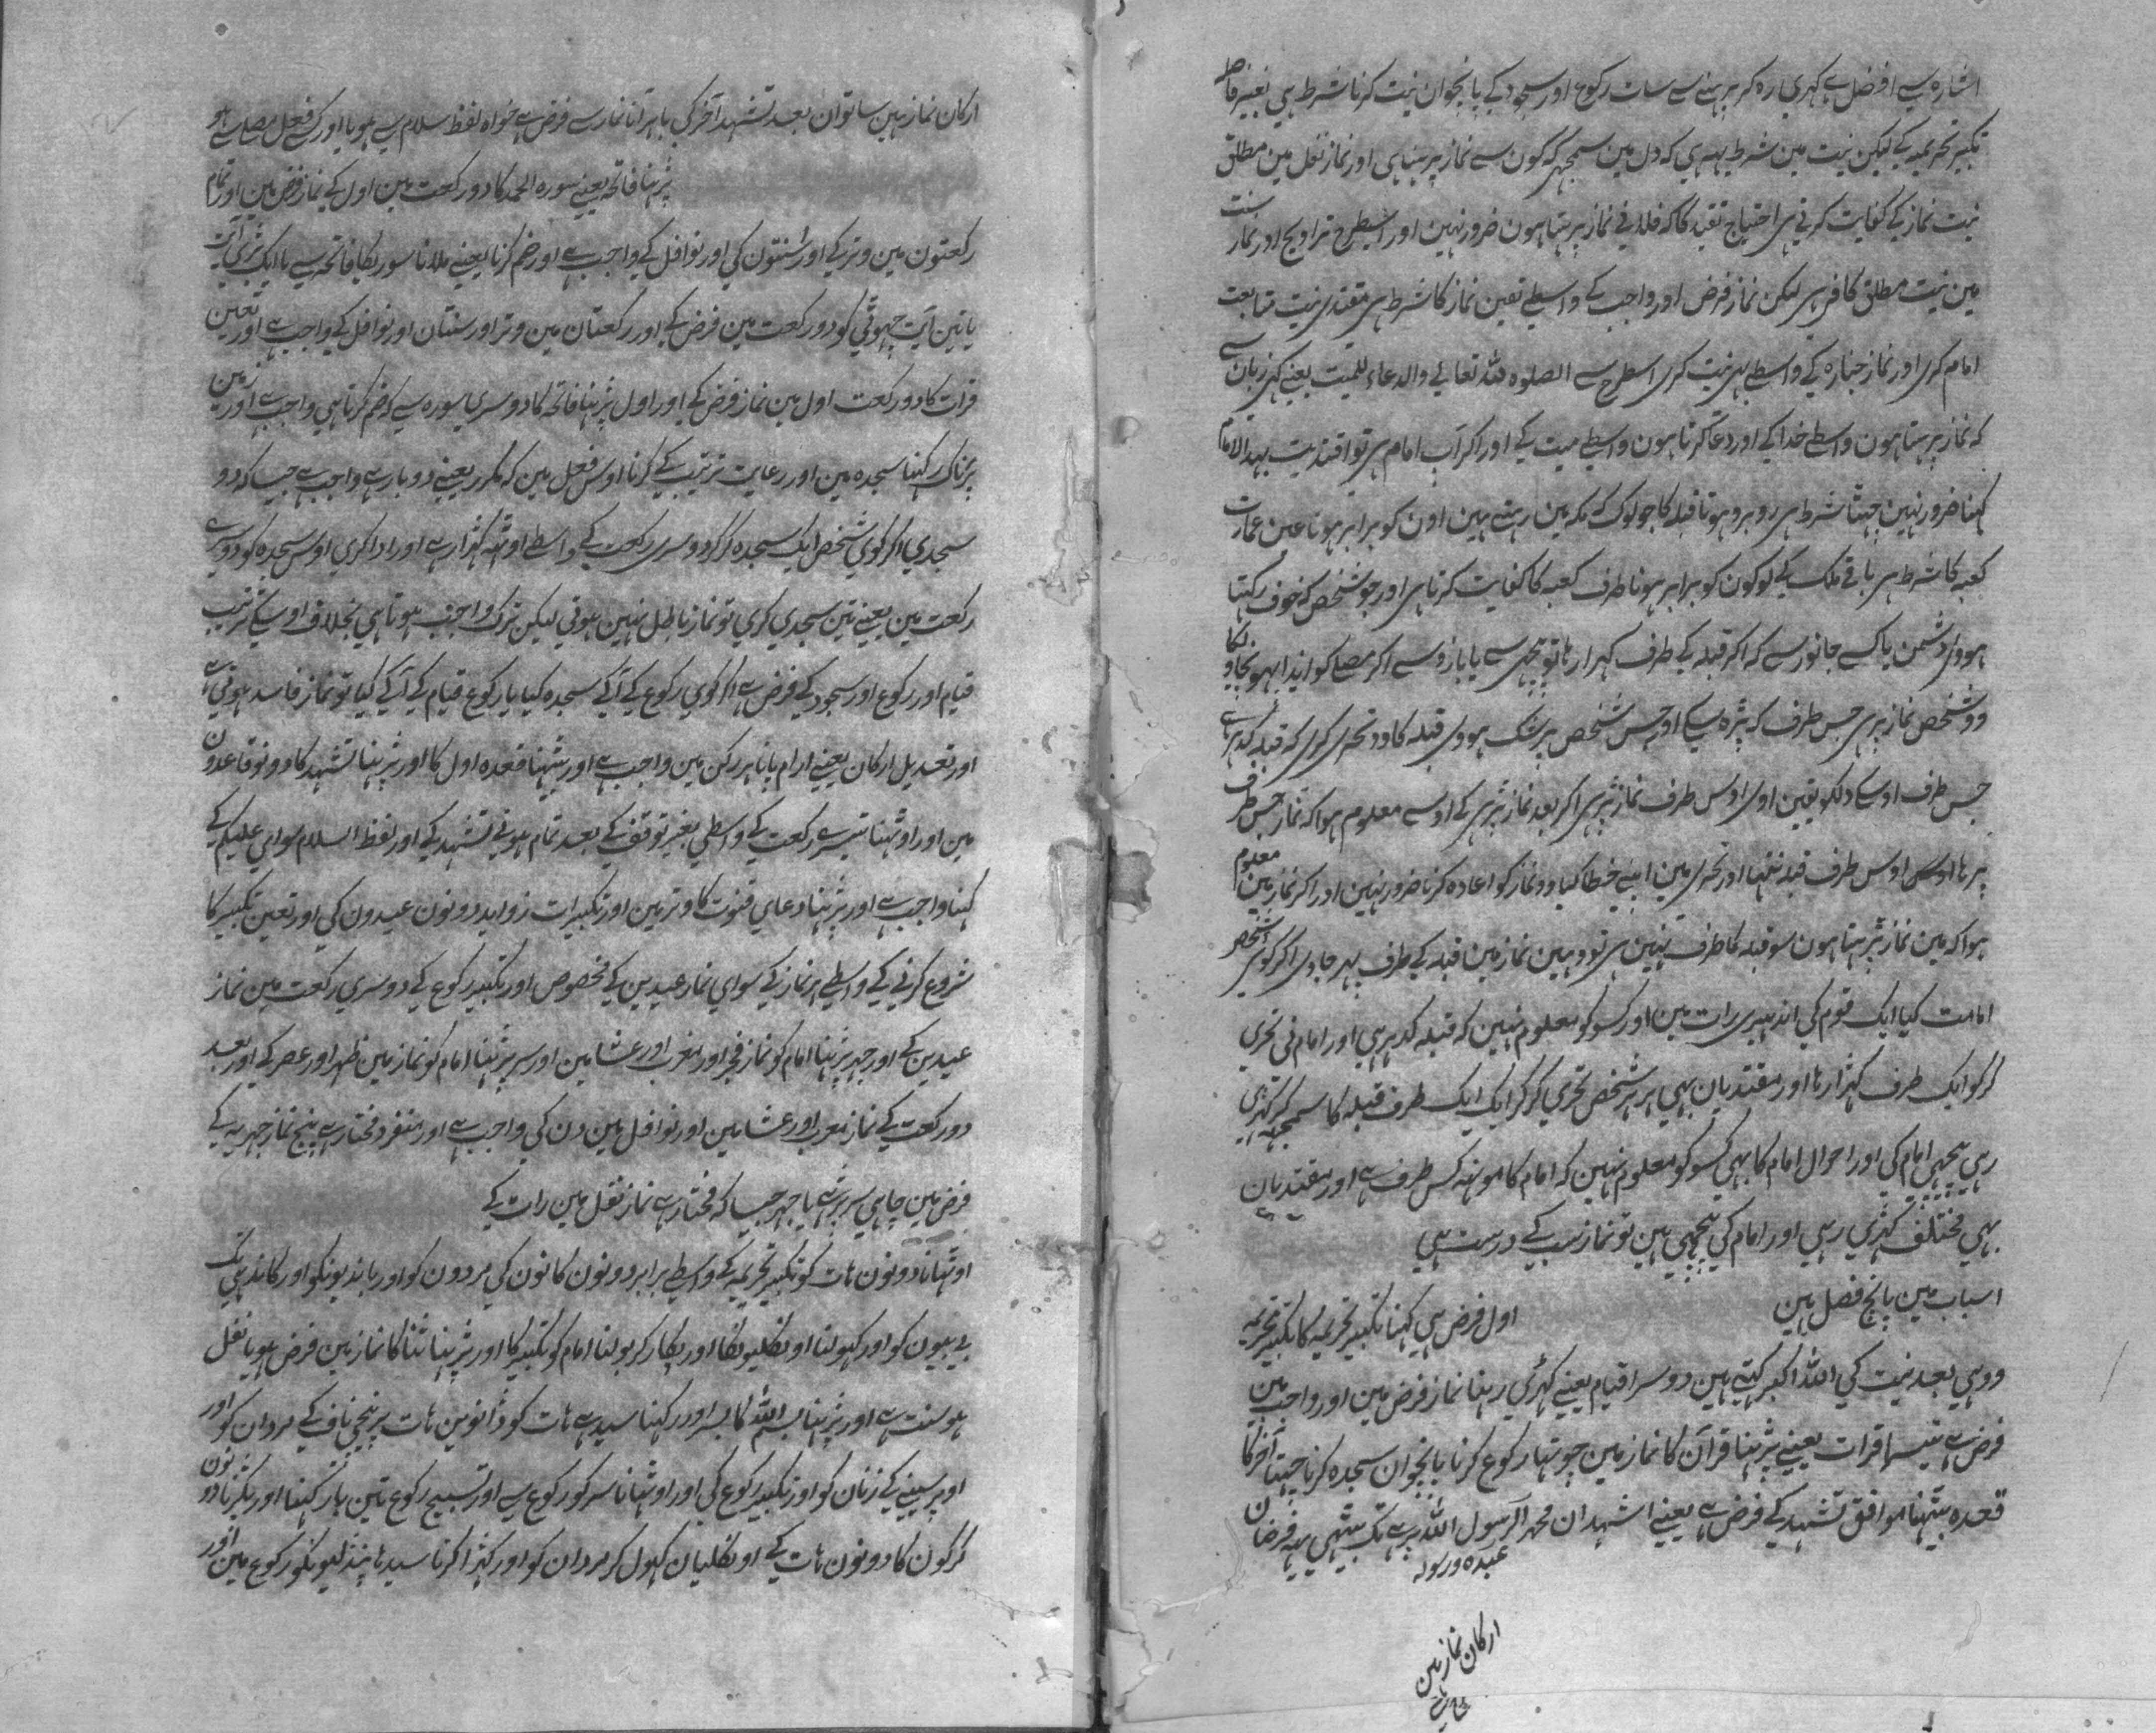 اشارہ سے افضل ہے کہری رہ کر پرہنے سے سات رکوع اور سجود کے پانچوان نیت کرنا شرط ہی بغیر فاصلہ
تکبیر تحریمہ کے لیکن نیت مین شرط یہہ ہی کہ دل مین سمجہی کہ کون سے نماز پرہتا ہی اور نماز نفل مین مطلق
نیت نماز کے کفایت کرتی ہی احتیاج تقید کا کہ فلانے نماز پرہتا ہون ضرور نہین اور اسیطرح تراویح اور نماز سنت
مین نیت مطلق کافی ہی لیکن نماز فرض اور واجب کے واسطے تعین نماز کا شرط ہی مقتدی نیت متابعت
امام کری اور نماز جنازہ کے واسطے یہی نیت کری اسطرح سے الصلوہ للہ تعالے والدعاء للمیت یعنے کہی زبان سے
کہ نماز پرہتا ہون واسطے خدا کے اور دعا کرتا ہون واسطے میت کے اور اکر آپ امام ہی تو اقتدیت بہذا الامام
کہنا ضرور نہین چہٹا شرط ہی روبرو ہوتا قبلہ کا جو لوک کہ مکہ مین رہتے ہین اون کو برابر ہونا عین عمارت
کعبہ کا شرط ہی باقے ملک کے لوکون کو برابر ہونا طرف کعبہ کا کفایت کرتا ہی اور جو شخص کہ خوف رکہتا
ہووی دشمن یا کسے جانور سے کہ اکر قبلہ کے طرف کہرا رہا تو پیچہی سے یا بازو سے اکر مصلے کو ایذا پہونچاویکا
وو شخص نماز پرہی جس طرف کہ پڑہ سکے اور جس شخص پر شک ہووی قبلہ کا وو تحری کری کہ قبلہ کدہر ہے
جس طرف اوسکے دلکو یقین اوی اوس طرف نماز پڑہی اکر بعد نماز پڑہی کے اوسے معلوم ہوا کہ نماز جس طرف
پرہا اوس طرف قبلہ نتہا اور تحری مین اپنے خطا کیا وو نماز کو اعادہ کرنا ضرور نہین اور اکر نماز مین معلوم
ہوا کہ مین نماز پڑہتا ہون سو قبلہ کا طرف نہین ہی تو وہین نماز مین قبلہ کے طرف پہر جاوی اکر کوئی شخص
امامت کیا ایک قوم کی اندہیری رات مین اور کسو کو معلوم نہین کہ قبلہ کدہر ہی اور امام نی تحری
کر کو ایک طرف کہڑا رہا اور مقتدیان بہی ہر ہر شخص تحری کر کر ایک ایک طرف قبلہ کا سمجہہ کر کہڑی
رہی پیچہی امام کی اور احوال امام کا بہی کسو کو معلوم نہین کہ امام کا مونہہ کس طرف ہے اور مقتدیان
بہی مختلف کہڑی رہی اور امام کی پیچہی ہین تو نماز سب کے درست ہی
اس باب مین پانچ فصل ہین
اول فرض ہی کہنا تکبیر تحریمہ کا تکبیر تحریمہ
وو ہی بعد نیت کی اللہ اکبر کہتے ہین دوسرا قیام یعنے کہڑی رہنا نماز فرض مین اور واجب مین
فرض ہے تیسرا قرات یعنے پڑہنا قرآن کا نماز مین چوتہا رکوع کرنا پانچوان سجدہ کرنا چہٹا آخر کا
قعدہ بیٹہنا موافق تشہد کے فرض ہے یعنے اشہد ان محمد الرسول اللہ پرہے تک بیٹہی یہہ فرضان
عبدہ ورسولہ
ارکان نماز ہین
ارکان نماز ہین ساتوان بعد تشہد آخر کی باہر آنا نماز سے فرض ہے خواہ لفظ سلام سے ہو یا اور کسے فعل مصلے سے ہو
پڑہنا فاتحہ یعنے سورہ الحمد کا دو رکعت مین اول کے نماز فرض مین اور تمام
رکعتون مین وتر کے اور سنتون کی اور نوافل کے واجب ہے اور ضم کرنا یعنے ملانا سوریکا فاتحہ سے یا ایک بڑی آیت
یا تین آیت چہوٹی کو دو رکعت مین فرض کے اور رکعتان مین وتر اور سنتان اور نوافل کے واجب ہے اور تعین
قرات کا دو رکعت اول مین نماز فرض کے اور اول پڑہنا فاتحہ کا دوسری سورہ سے کہ ضم کرتا ہی واجب ہے اور زمین
پر ناک رکہنا سجدہ مین اور رعایت ترتیب کے کرنا اوس فعل مین کہ مکرر یعنے دوبارے واجب ہے جیسا کہ دو
سجدی اکر کوی شخص ایک سجدہ کر کر دوسری رکعت کے واسطے اوٹہہ کہڑا رہے اور ادا کری اوس سجدہ کو دوسرے
رکعت مین یعنے تین سجدی کری تو نماز باطل نہین ہوتی لیکن ترک واجب ہوتا ہی بخلاف اوسکے ترتیب
قیام اور رکوع اور سجود کے فرض ہے اکر کوی رکوع کے آکے سجدہ کیا یا رکوع قیام کے آکے کیا تو نماز فاسد ہوتی ہے
اور تعدیل ارکان یعنے ارام پانا ہر رکن مین واجب ہے اور بیٹہنا قعدہ اول کا اور پڑہنا تشہد کا دونو قاعدون
مین اور اوٹہنا تیسرے رکعت کے واسطی بغیر توقف کے بعد تمام ہونے تشہد کے اور لفظ السلام سوای علیکم کے
کہنا واجب ہے اور پڑہنا دعای قنوت کا وتر مین اور تکبیرات زواید دونون عیدون کی اور تعین تکبیر کا
شروع کرنی کے واسطے ہر نماز کے سوای نماز عیدین کے مخصوص اور تکبیر رکوع کے دوسری رکعت مین نماز
عیدین کے اور جہر پڑہنا امام کو نماز فجر اور مغرب اور عشا مین اور سر پڑہنا امام کو نماز مین ظہر اور عصر کے اور بعد
دو رکعت کے نماز مغرب اور عشا مین اور نوافل مین دن کی واجب ہے اور منفرد مختار ہے بیچ نماز جہریہ کے
فرض مین چاہی سر پڑہے یا جہر جیسا کہ مختار ہے نماز نفل مین رات کے
اوٹہانا دونون ہات کو تکبیر تحریمہ کے واسطے برابر دونون کانون کی مردون کو اور باندیونکو اور کاندہی تک
بے بیون کو اور کہولنا اونکلیونکا اور پکار کر بولنا امام کو تکبیر کا اور پڑہنا ثنا کا نماز مین فرض ہو یا نفل
ہو سنت ہے اور پڑہنا بسم اللہ کا سر اور رکہنا سیدہے ہات کو ڈانوین ہات پر نیچی ناف کے مردان کو اور
اوپر سینے کے زنان کو اور تکبیر رکوع کی اور اوٹہانا سر کو رکوع سے اور تسبیح رکوع تین بار کہنا اور پکڑنا دونون
کرکون کا دونون ہات کے اونکلیان کہول کر مردان کو اور کہڑا کرنا سیدہا پنڈلیونکو رکوع مین اور